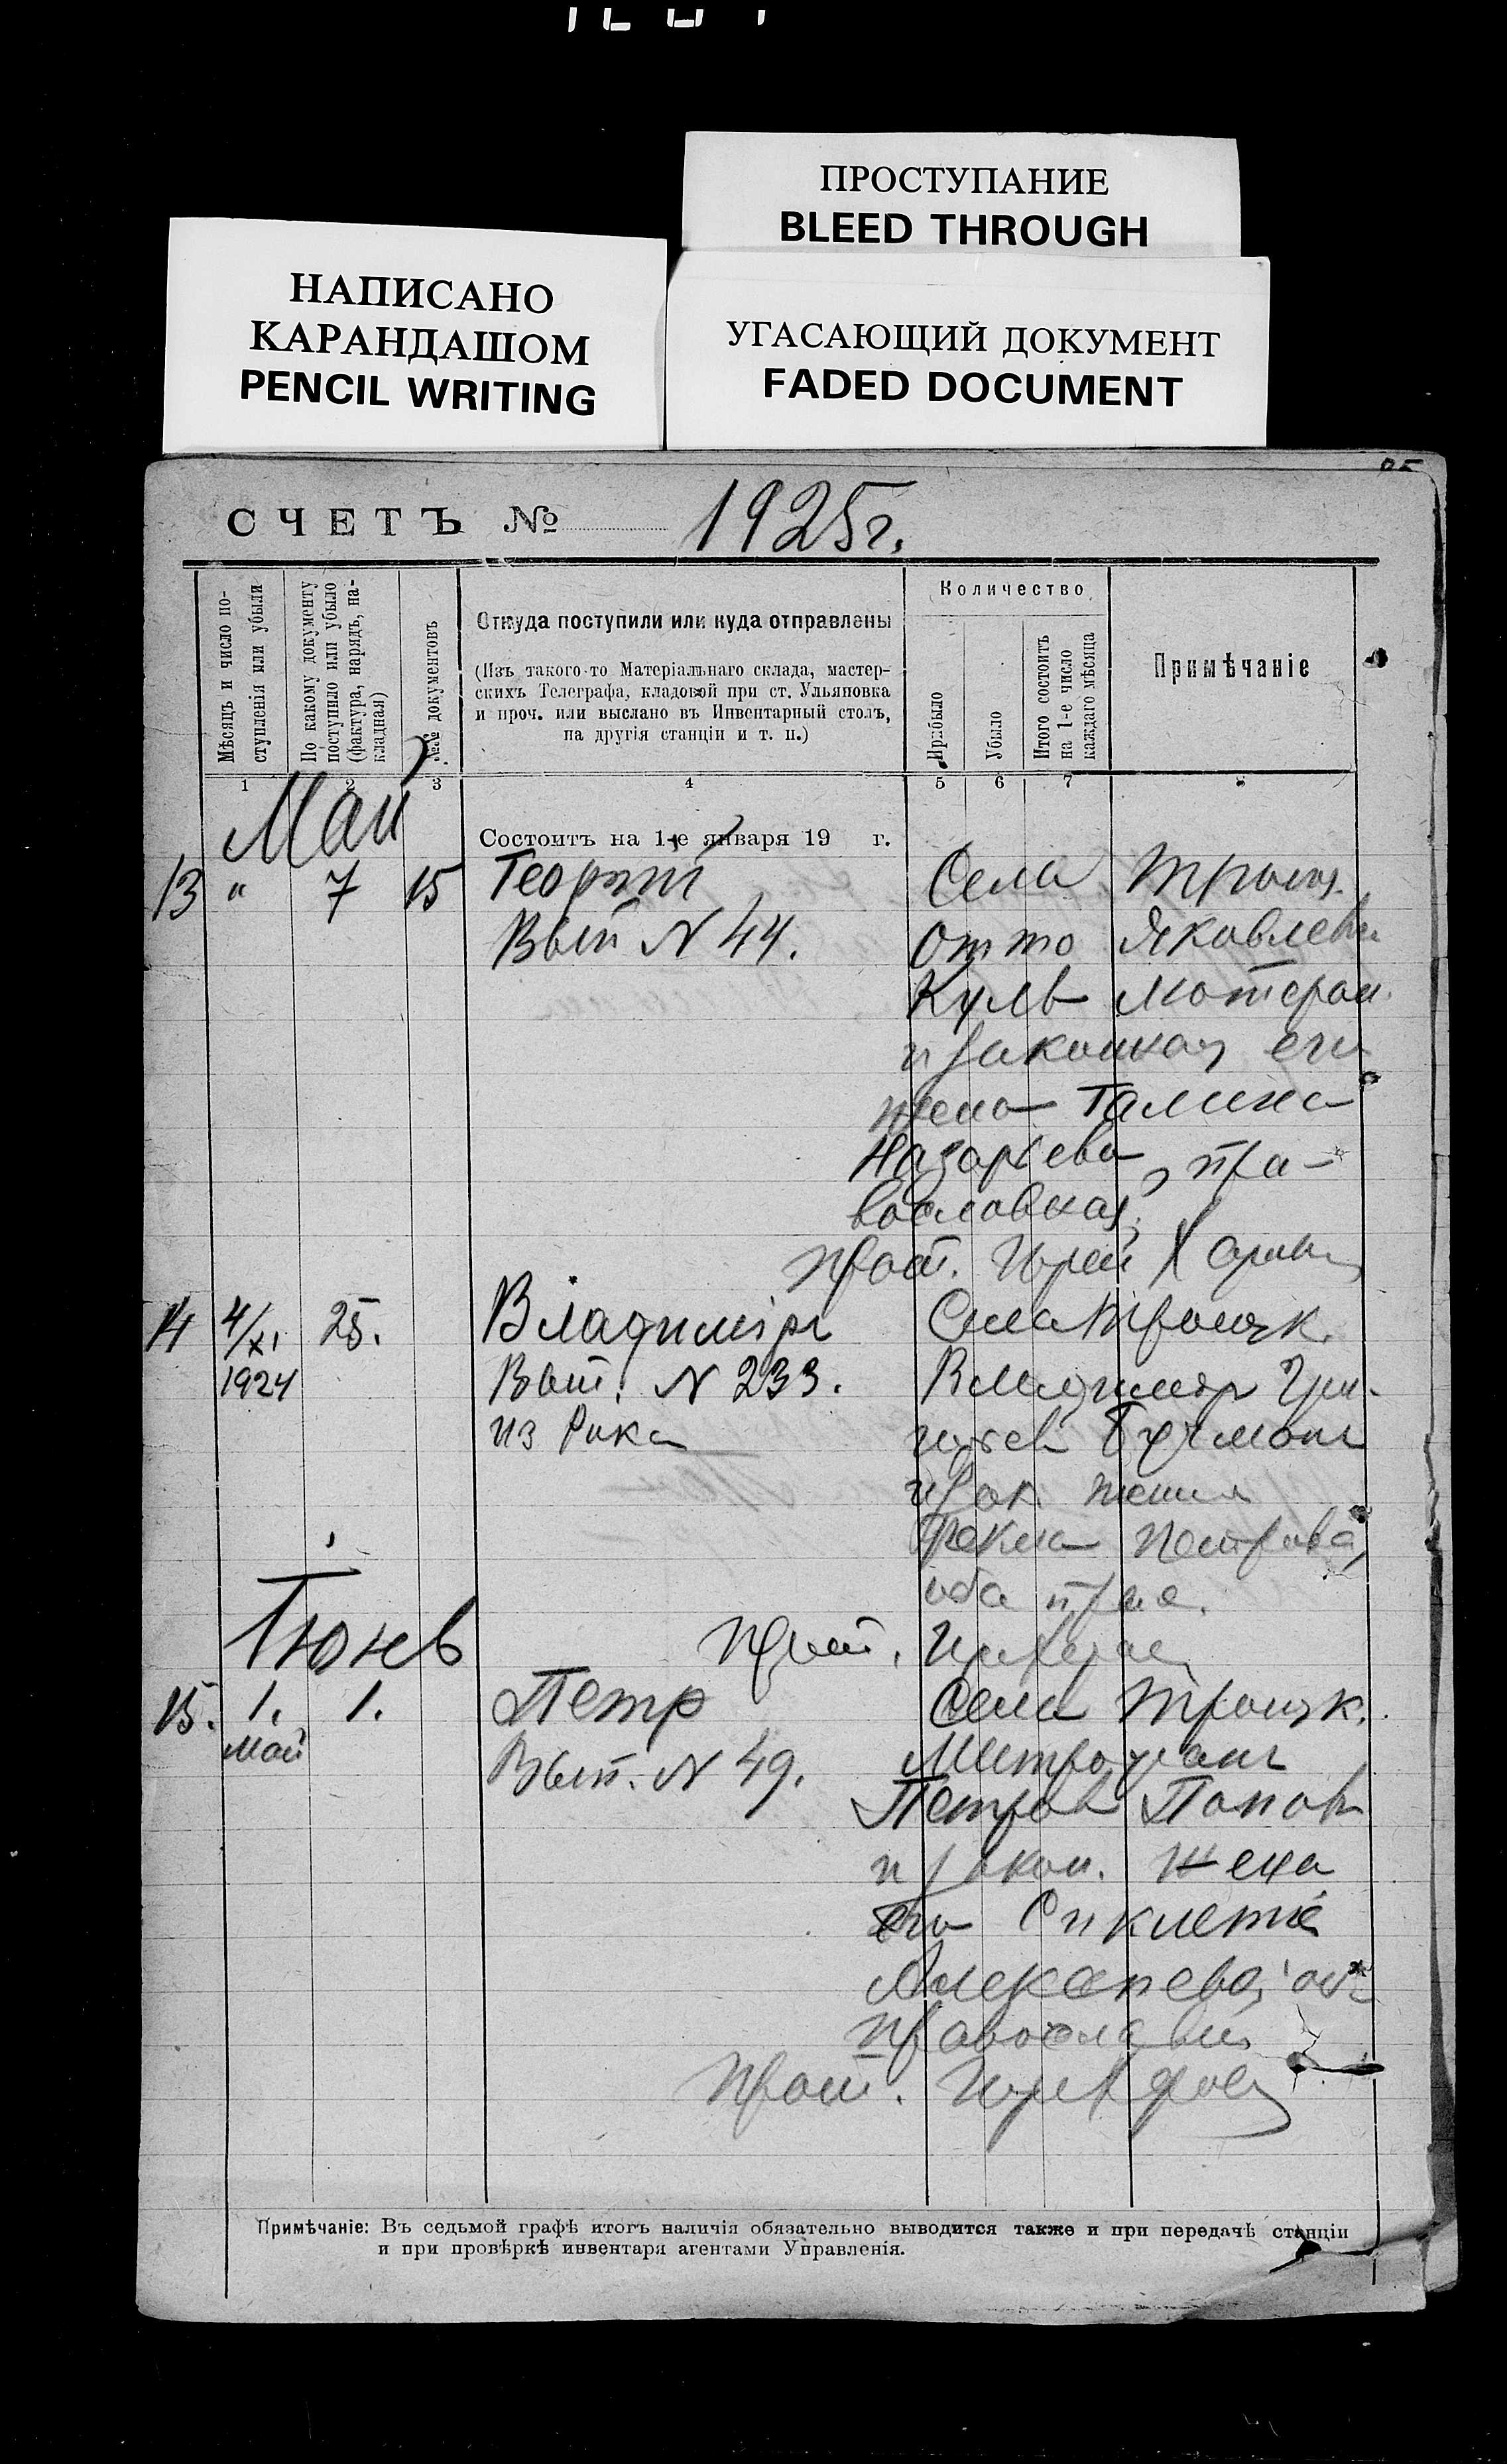 ПРОСТУПАНИЕ
BLEED THROUGH
НАПИСАНО
КАРАНДАШОМ
PENCIL WRITING
УГАСАЮЩИЙ ДОКУМЕНТ
FADED DOCUMENT
СЧЕТЪ № 1925г.
Мѣсяцъ и число по-
ступленія или убыли
По какому документу
поступило или убыло
(фактура, нарядъ, на-
кладная)
№№ документовъ
Откуда поступили или куда отправлены
(Изъ такого-то Матеріальнаго склада, мастер-
скихъ Телеграфа, кладовой при ст. Ульяновка
и проч. или выслано въ Инвентарный столъ,
на другія станціи и т. п.)
Количество
Прибыло
Убыло
Итого состоитъ
на 1-е число
каждаго мѣсяца
Примѣчаніе
1 2 3 4 5 6 7
Май
Состоитъ на 1-е января 19 г.
13 " 7 15 Георгий Села Троиц.
Вып N 44. Отто Яковлев
Куль лютеран.
и законная его
жена Галина
Назарьева, пра-
вославная.
Прот.
14 4/XI 25. Владиміръ Села Троицк.
1924 Вып. N 233. Владимир Гри-
из Рика
и зак. жена
Фекла Петрова,
оба прав.
Іюнь Прот.
15. 1. 1. Петр Села Троицк.
май Вып. N 49. Митрофан
Петров Попов
и закон. жена
его
Алексеева, об
православн
Прот.
Примѣчаніе: Въ седьмой графѣ итогъ наличія обязательно выводится также и при передачѣ станціи
и при провѣркѣ инвентаря агентами Управленія.